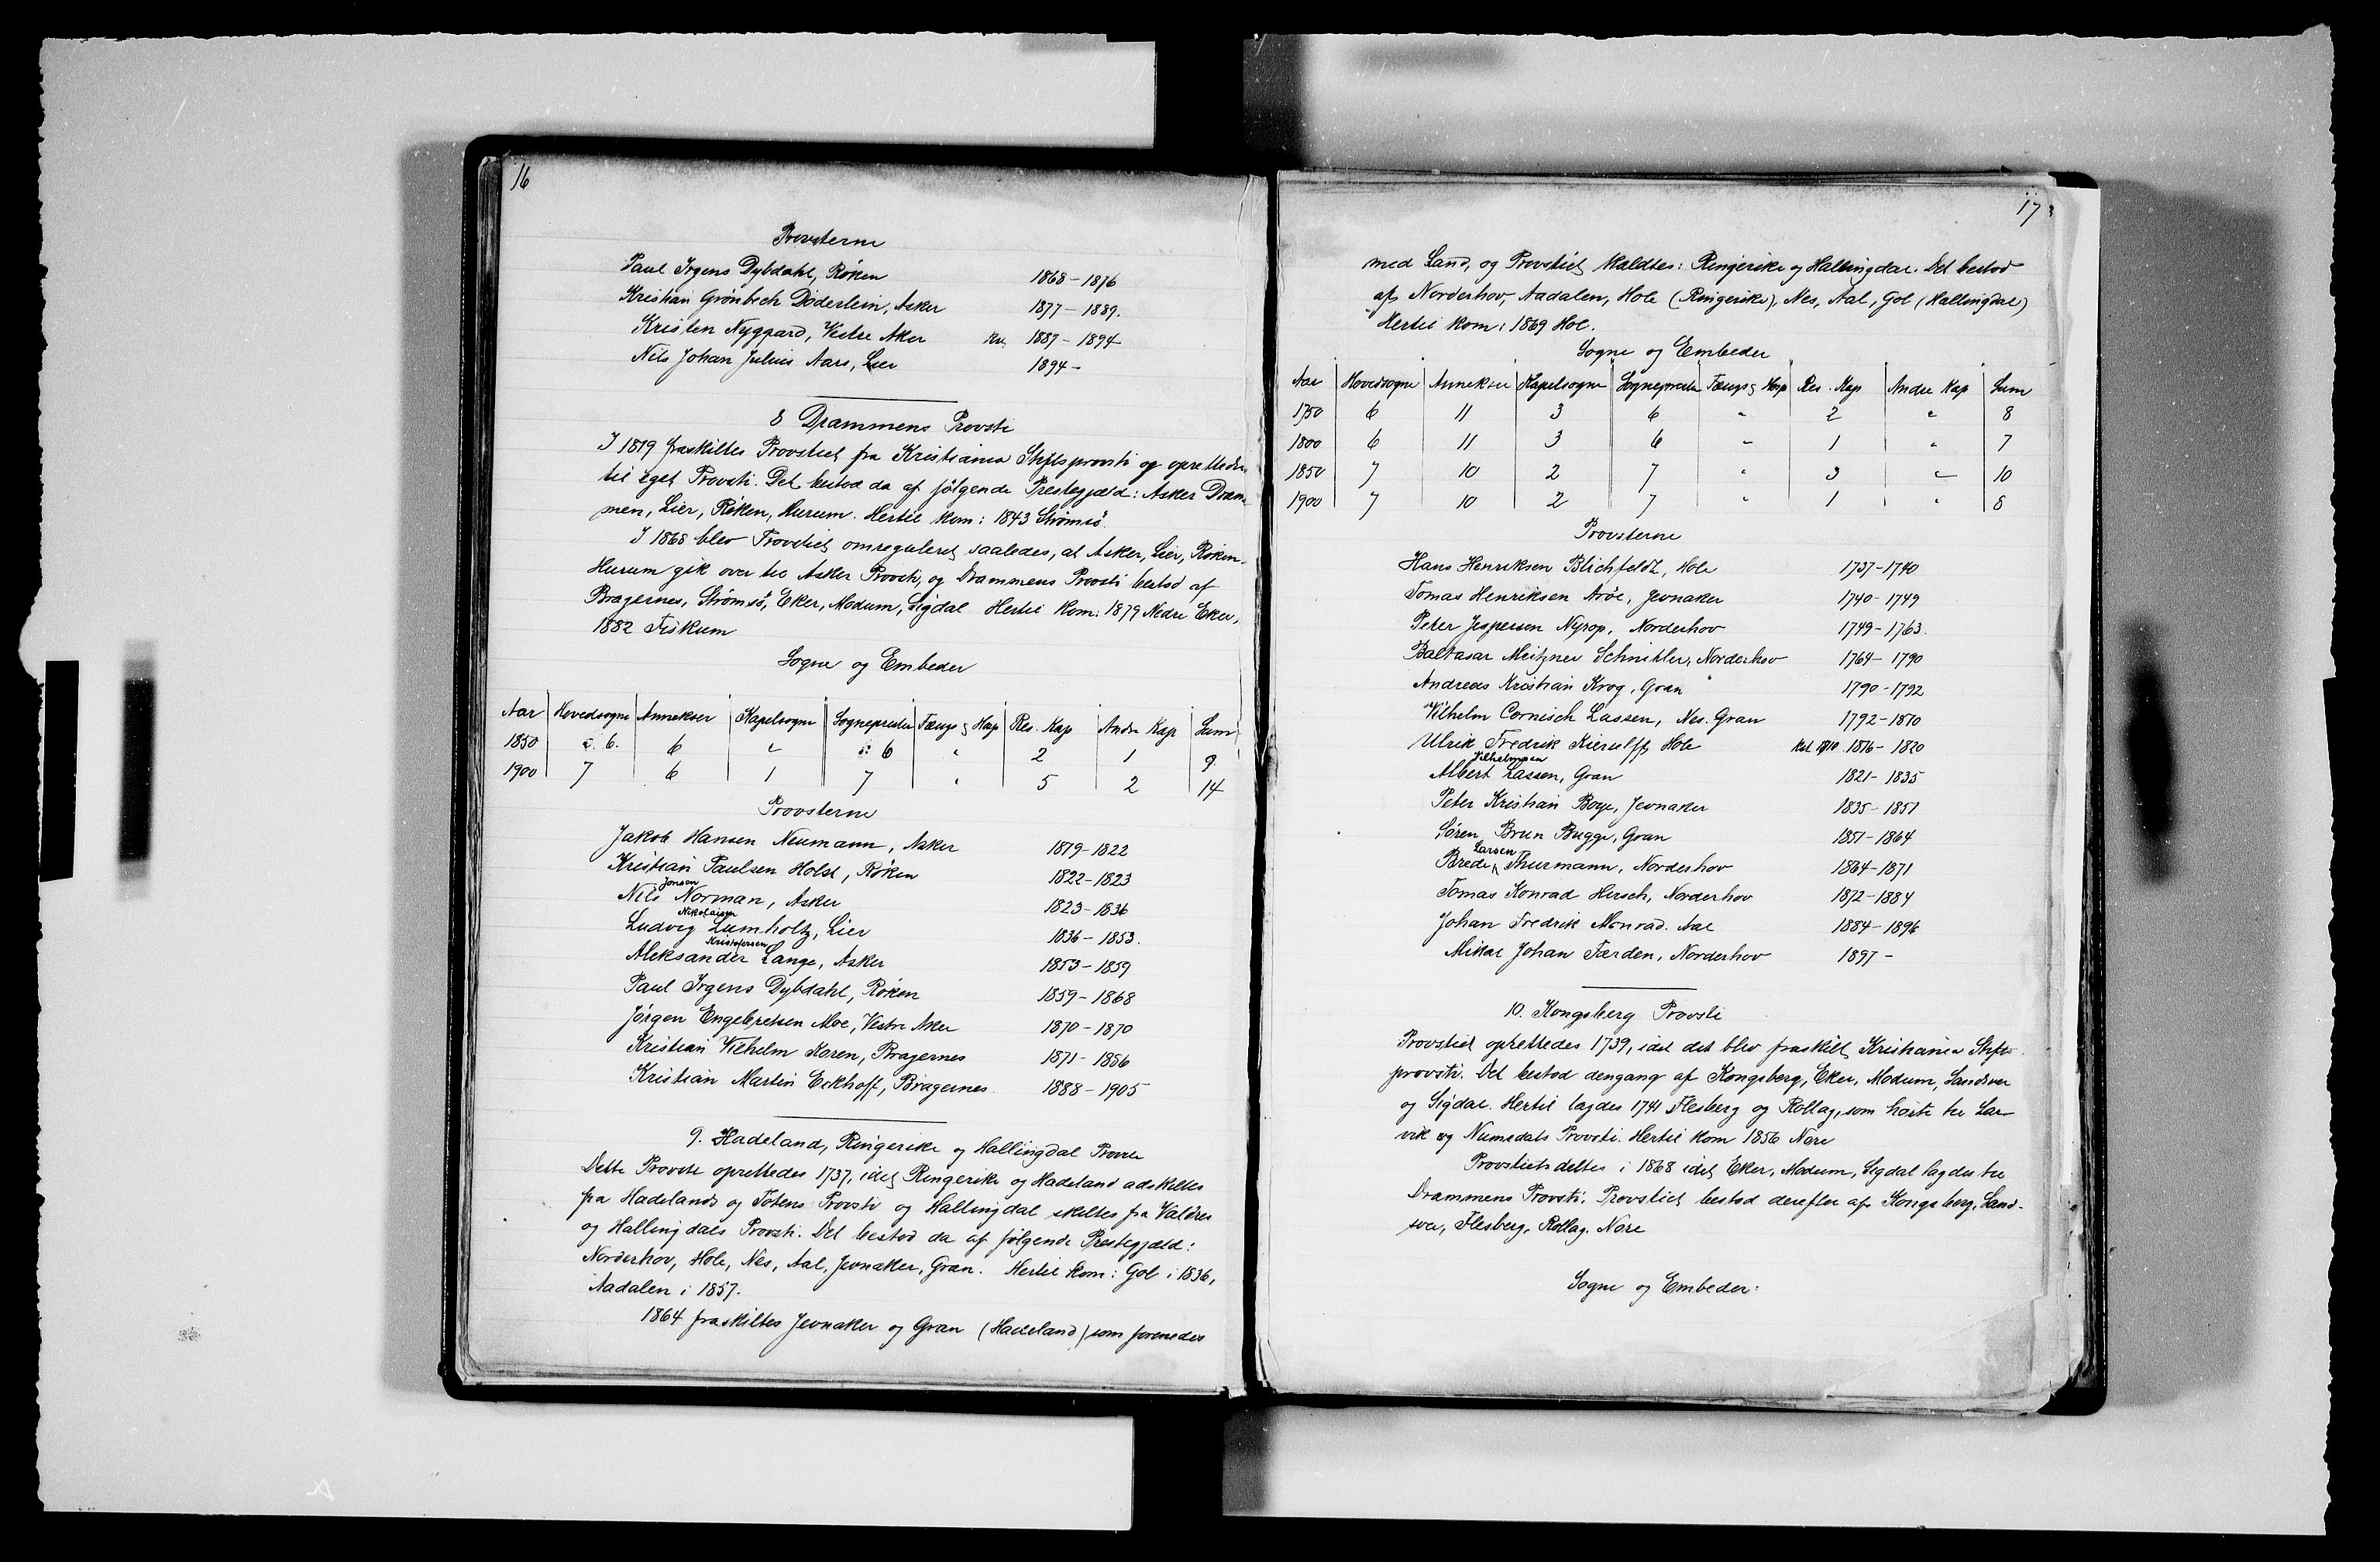 16
Provsterne
Paul Irgens Dybdahl, Røken 1868 – 1876
Kristian Grønbech Døderlein, Asker 1877 – 1889.
Kristen Nygaard, Vestre Aker 1887 – 1894
Nils Johan Julius Aars, Lier 1894 –
8 Drammens Provsti
I 1819 fraskiltes Provstiet fra Kristiania Stiftsprovsti og oprettedes
til eget Provsti. Det bestod da af følgende Prestegjæld: Asker Dram-
men, Lier, Røken, Hurum. Hertil kom: 1843 Strømsø.
I 1868 blev Provstiet omreguleret saaledes, at Asker, Lier, Røken-
Hurum gik over til Asker Provsti, og Drammens Provsti bestod af
Bragernes, Strømsø, Eker, Modum, Sigdal. Hertil kom: 1879 Nedre Eker,
1882 Fiskum
Sogne og Embeder
Aar Hovedsogne Annekser Kapelsogne Sogneprester Fængs & Hosp Res. Kap Andre Kap Sum
1850 6. 6 " 6 " 2 1 9
1900 7 6 1 7 " 5 2 14
Provsterne
Jakob Hansen Neumann, Asker 1819 – 1822
Kristian Paulsen Holst, Røken 1822 – 1823
Nils Jonsen Norman, Asker 1823 – 1836
Ludvig Nikolaisen Lumholtz, Lier 1836 – 1853.
Aleksander Kristofersen Lange, Asker 1853 – 1859
Paul Irgens Dybdahl, Røken 1859 – 1868
Jørgen Engebretsen Moe, Vestre Aker 1870 – 1870
Kristian Vilhelm Koren, Bragernes 1871 – 1886
Kristian Martin Eckhoff, Bragernes 1888 – 1905
9. Hadeland, Ringerike og Hallingdal Provsti
Dette Provsti oprettedes 1737, idet Ringerike og Hadeland adskiltes
fra Hadelands og Totens Provsti og Hallingdal skiltes fra Valdres
og Hallingdals Provsti. Det bestod da af følgende Prestegjæld:
Norderhov, Hole, Nes, Aal, Jevnaker, Gran. Hertil kom: Gol i 1836,
Aadalen i 1857.
1864 fraskiltes Jevnaker og Gran (Hadeland) som forenedes
17
med Land, og Provstiet kaldtes: Ringerike og Hallingdal. Det bestod
af Norderhov, Aadalen, Hole (Ringerike), Nes, Aal, Gol (Hallingdal)
Hertil kom: 1869 Hol.
Sogne og Embeder
Aar Hovedsogne Annekser Kapelsogne Sogneprester Fængs & Hosp Res. Kap Andre Kap Sum
1750 6 11 3 6 " 2 " 8
1800 6 11 3 6 " 1 " 7
1850 7 10 2 7 " 3 " 10
1900 7 10 2 7 " 1 " 8
Provsterne
Hans Henriksen Blichfeldt, Hole 1737 – 1740
Tomas Henriksen Arøe, Jevnaker 1740 – 1749
Peter Jespersen Nyrop, Norderhov 1749 – 1763.
Baltasar Meitzner Schnitler, Norderhov 1764 – 1790
Andreas Kristian Krog, Gran 1790 – 1792
Vilhelm Cornisch Lassen, Nes. Gran 1792 – 1810
Ulrik Fredrik Kierulff, Hole Kst 1810 1816 – 1820
Albert Vilhelmsen Lassen, Gran 1821 – 1835
Peter Kristian Boye, Jevnaker 1835 – 1851
Søren Brun Bugge, Gran 1851 – 1864
Brede Larsen Thurmann, Norderhov 1864 – 1871
Tomas Konrad Hirsch, Norderhov 1872 – 1884
Johan Fredrik Monrad. Aal 1884 – 1896
Mikal Johan Færden, Norderhov 1897 –
10. Kongsberg Provsti
Provstiet oprettedes 1739, idet det blev fraskilt Kristiania Stifts-
provsti. Det bestod dengang af Kongsberg, Eker, Modum, Sandsver
og Sigdal. Hertil lagdes 1741 Flesberg og Rollag, som hørte til Lar-
vik og Numedals Provsti. Hertil kom 1856 Nore
Provstiet deltes i 1868 idet Eker, Modum, Sigdal lagdes til
Drammens Provsti. Provstiet bestod derefter af Kongsberg, Sand-
sver, Flesberg, Rollag, Nore
Sogne og Embeder: